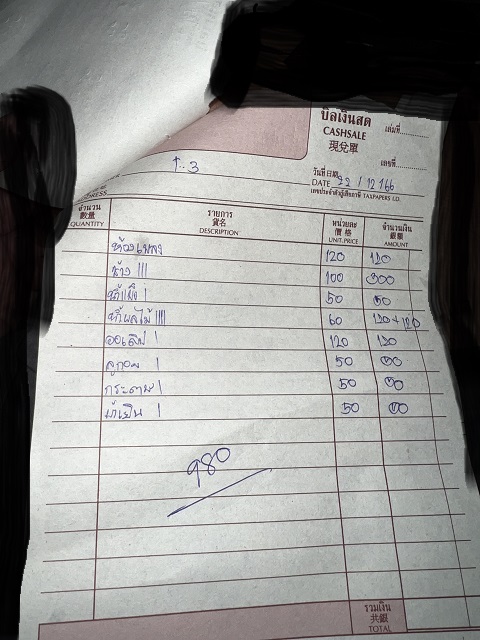 บิลเงินสด
CASHSALE
現兌單
เล่มที่
เลขที่
ADDRESS ร.3
วันที่
DATE 22 / 12 / 66
เลขประจำตัวผู้เสียภาษี TAXPAYERS I.D.
จำนวน รายการ หน่วยละ จำนวนเงิน
數量 貨名 價格 銀額
QUANTITY DESCRIPTION UNIT PRICE AMOUNT
ห้องเพลง 120 120
ช้าง ||| 100 300
50 50
ผลไม้ |||| 60 120+120
| 120 120
ลูกอม | 50 50
กระดาษ | 50 50
| 50 50
980
รวมเงิน
共銀
TOTAL